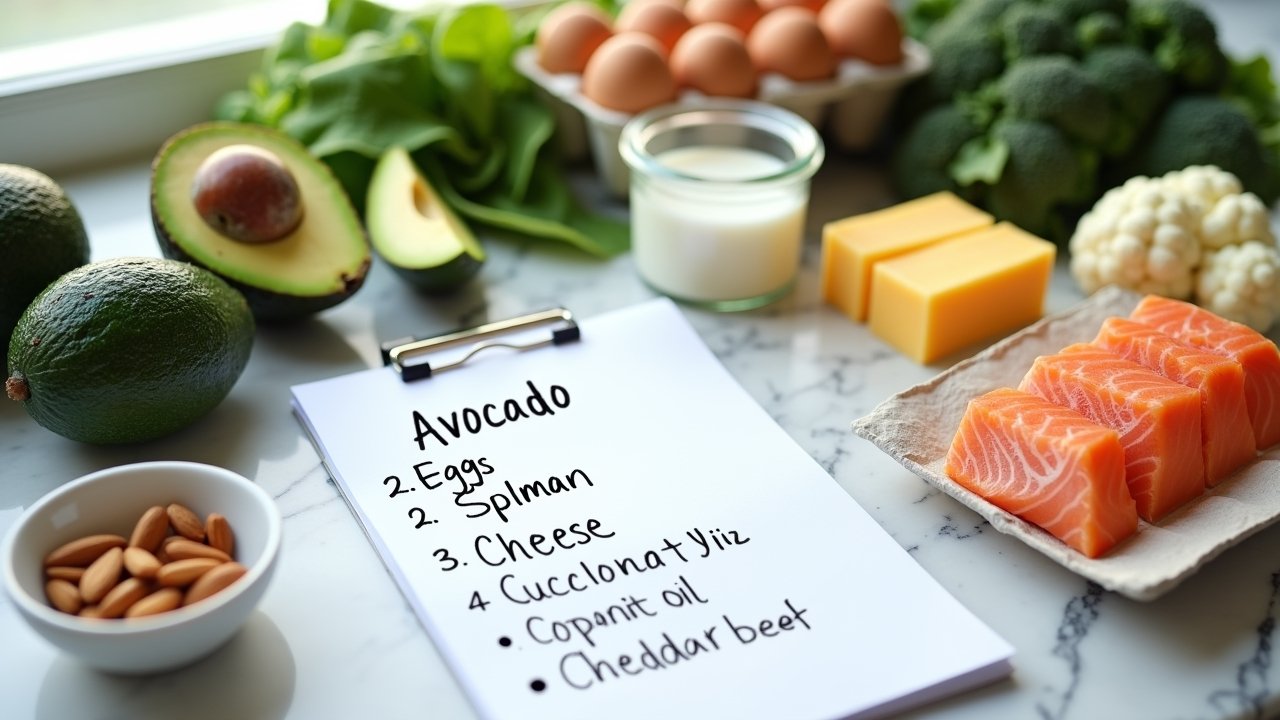 Avocado
2. Eggs
2. Splman
3. Cheese
4 Cucclonat yiiz
• Copanit oil
• Cheddar beet